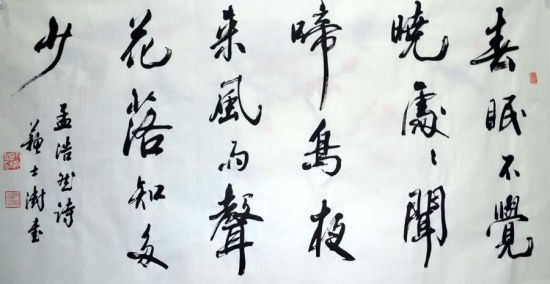 春眠不覺
曉處〻聞
啼鳥夜
来風雨聲
花落知多
少
孟浩然詩
蘇士澍書